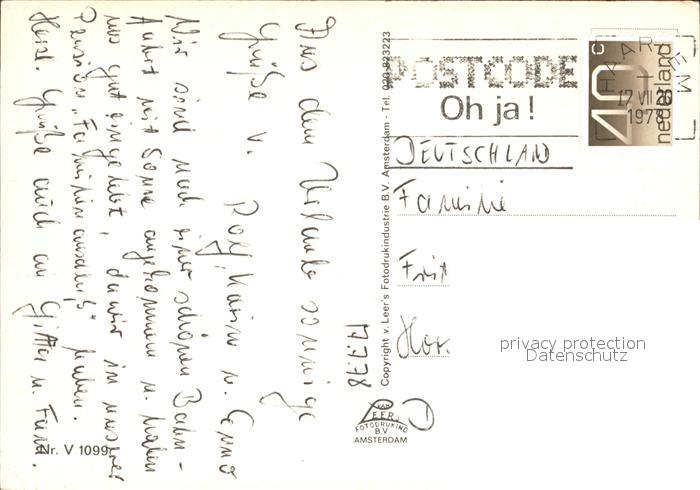 17.7.78
Aus dem Urlaub sonnige
Grüße v.
Rolf, Karin u. Enno
Wir sind nach einer schönen Bahn-
fahrt mit Sonne angekommen u. haben
uns gut eingelebt, da wir in unserer
Pension „Familienanschluß“ haben.
Herzl. Grüße auch an Gitta u. Fam.
Nr. V 1099
Copyright v. Leer's Fotodrukindustrie B.V. Amsterdam - Tel. 020-823223
VAN
LEER
FOTODRUKIND
B.V.
AMSTERDAM
POSTCODE
Oh ja!
HAARLEM
17 VII 20
1978
40 c
nederland
DEUTSCHLAND
Familie
Frit
Hor.
privacy protection
Datenschutz